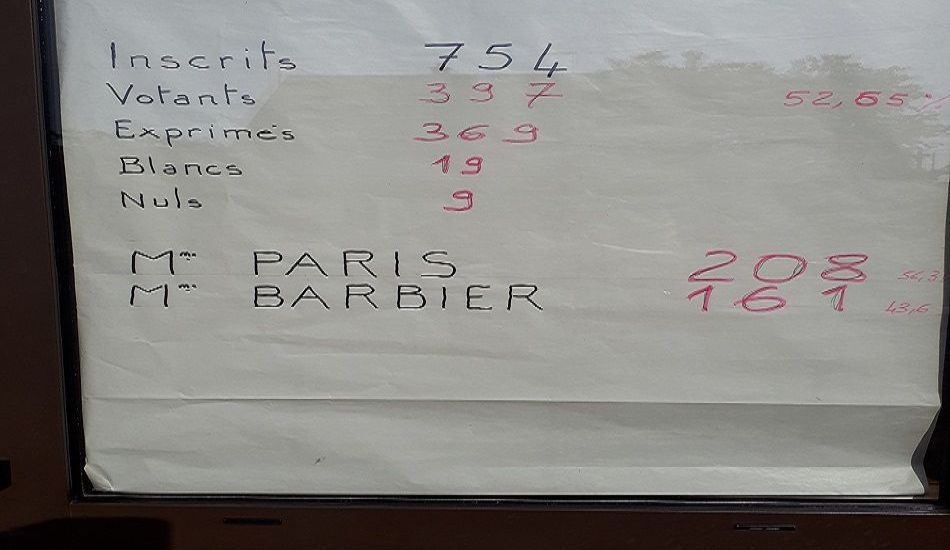 Inscrits 754
Votants 397 52,65 %
Exprimés 369
Blancs 19
Nuls 9
Mme PARIS 208 56,3
Mme BARBIER 161 43,6